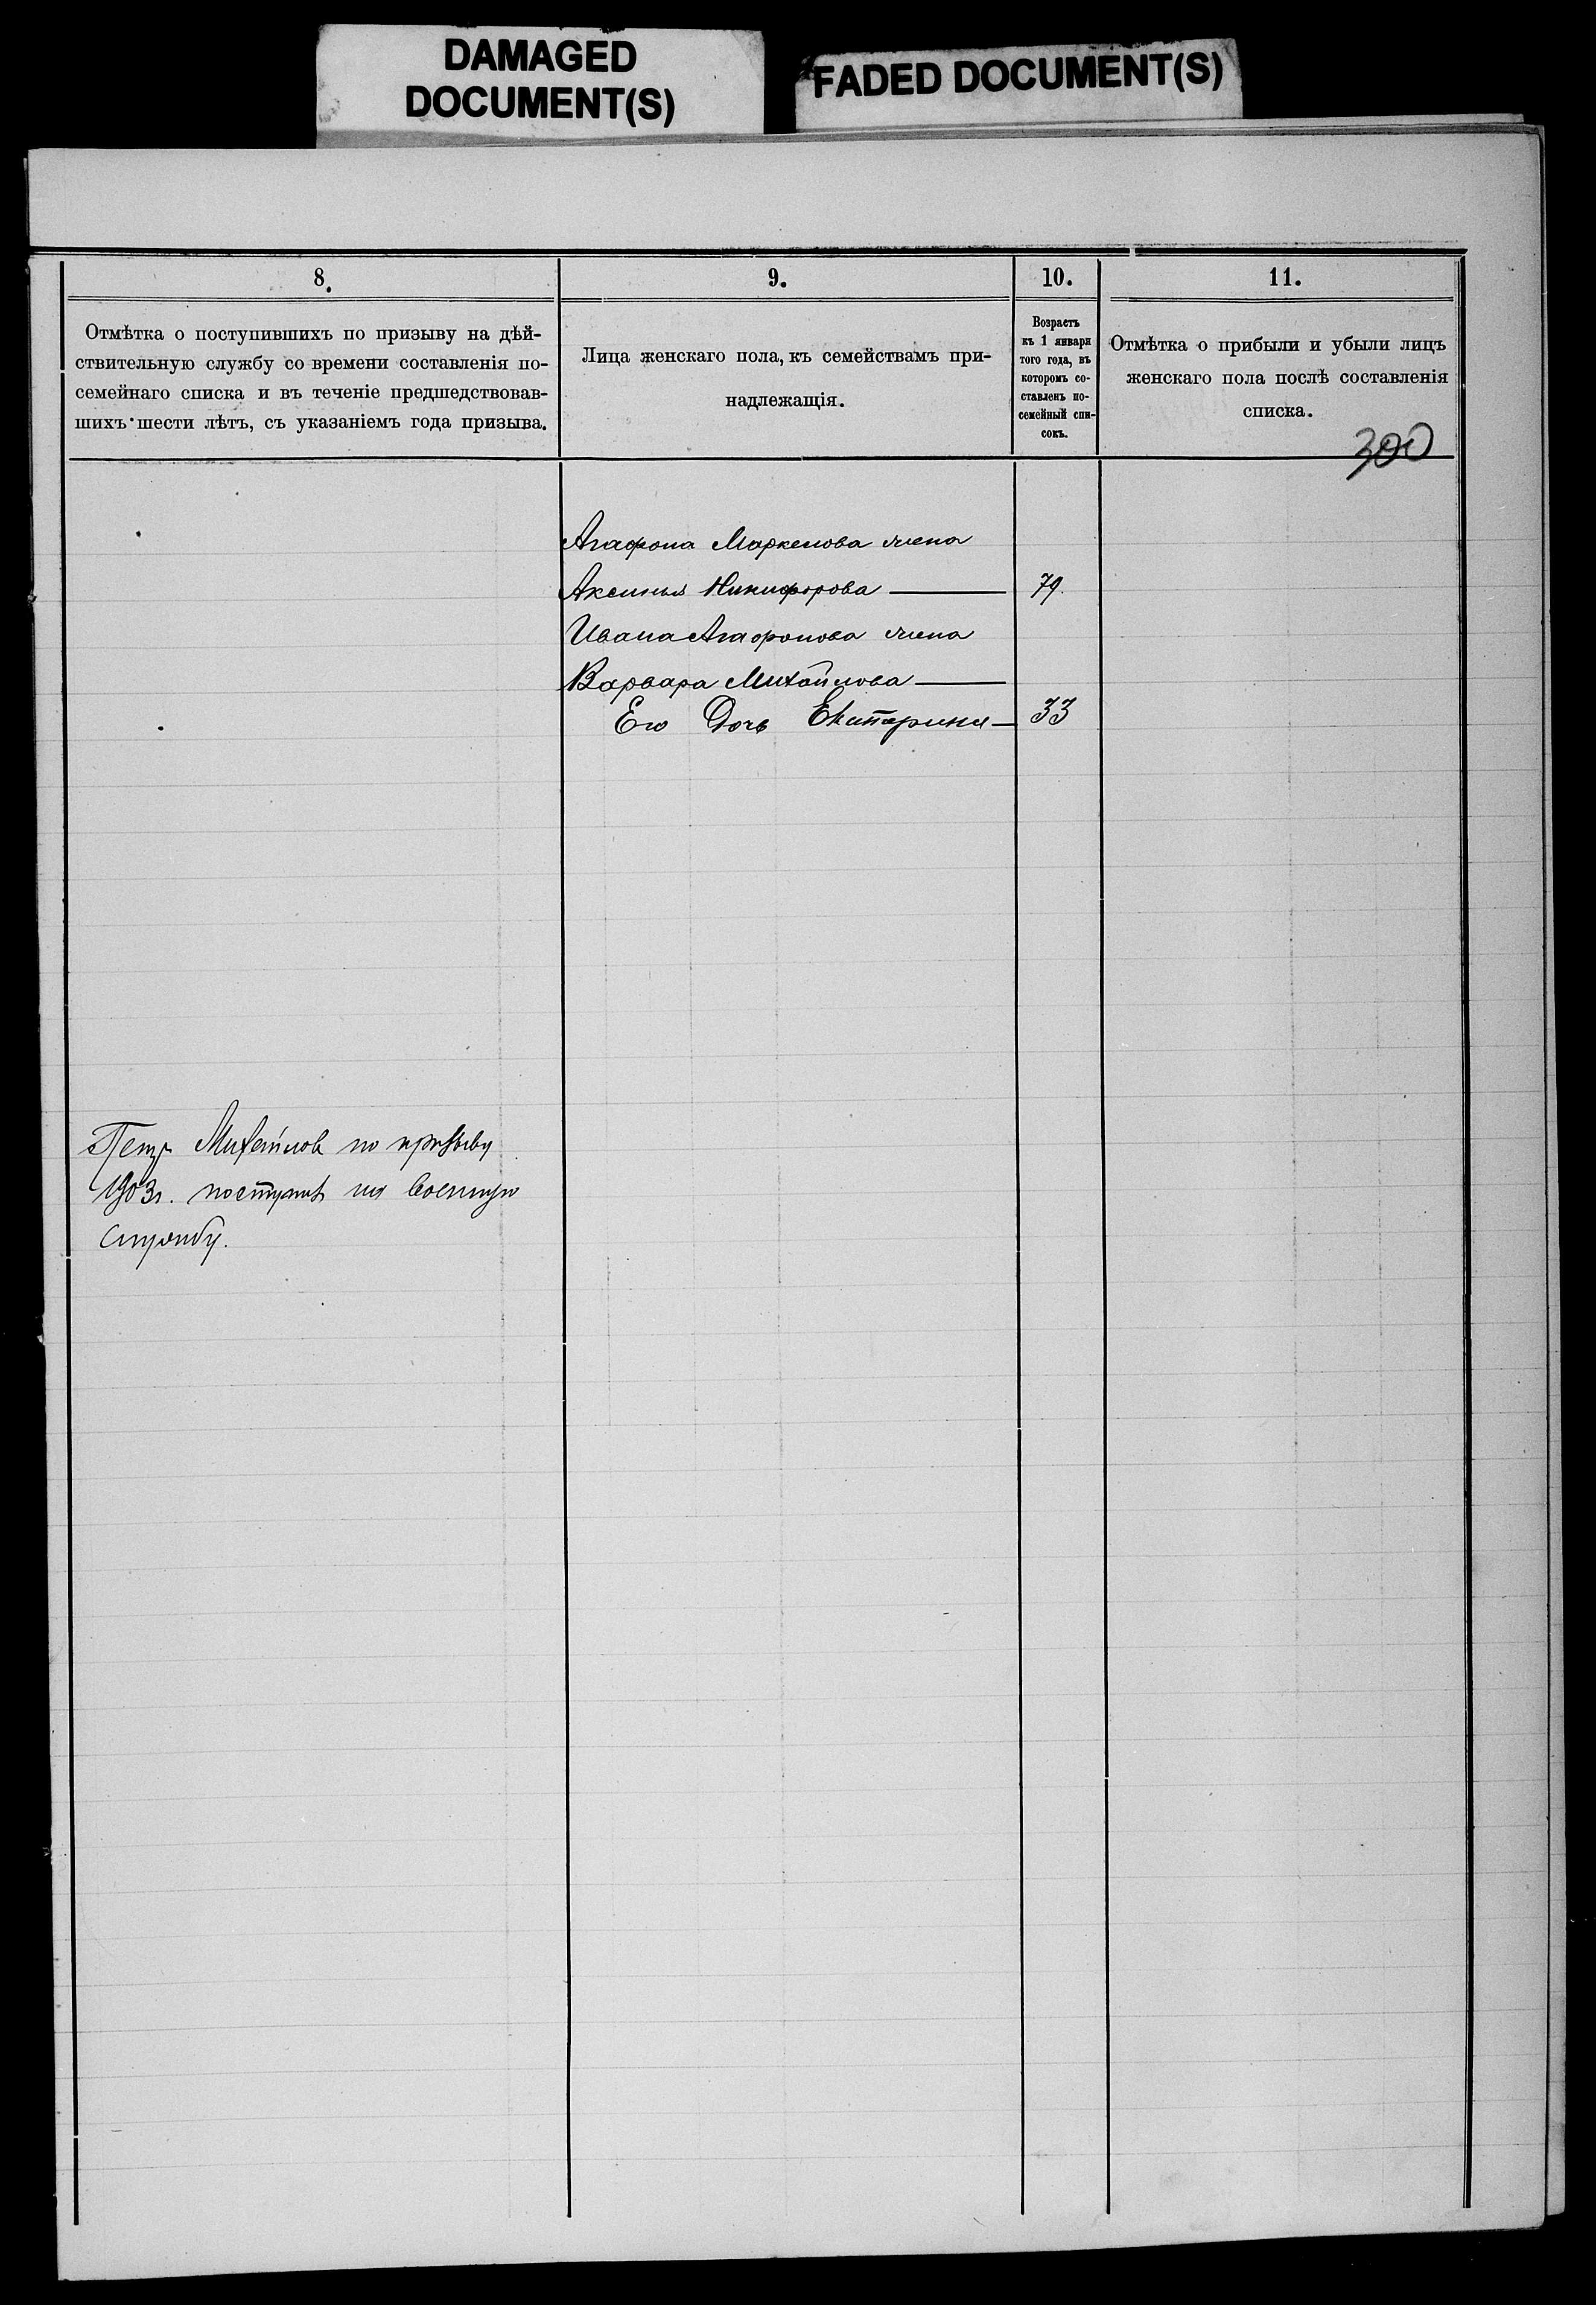 DAMAGED
DOCUMENT(S)
FADED DOCUMENT(S)
8.
9.
10.
11.
Отмѣтка о поступившихъ по призыву на дѣй-
ствительную службу со времени составленія по-
семейнаго списка и въ теченіе предшедствовав-
шихъ шести лѣтъ, съ указаніемъ года призыва.
Лица женскаго пола, къ семействамъ при-
надлежащія.
Возрастъ
къ 1 января
того года, въ
которомъ со-
ставленъ по-
семейный спи-
сокъ.
Отмѣтка о прибыли и убыли лицъ
женскаго пола послѣ составленія
списка.
300
Агафона Маркелова жена
Аксинья Никифорова — 79.
Ивана Агафонова жена
Варвара Михайлова —
Его Дочь Екатерина — 33
Петръ Михайловъ по призыву
1903г. поступилъ на военную
службу.